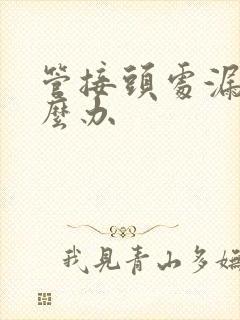 管接頭處漏
麼办
我見青山多嫵